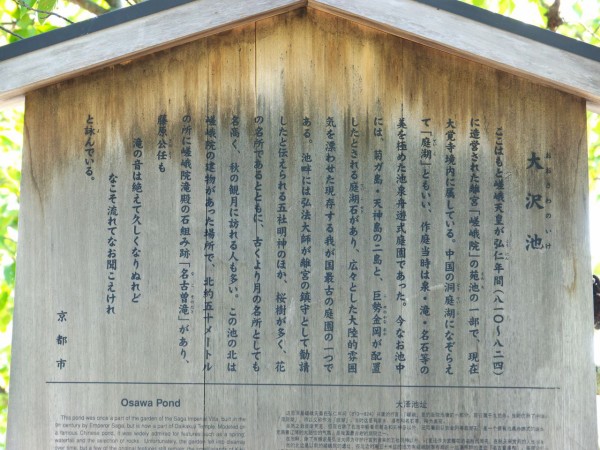 大沢池
おおさわのいけ
ここはもと嵯峨天皇が弘仁年間(八一〇〜八二四)
に造営された離宮「嵯峨院」の苑池の一部で、現在
大覚寺境内に属している。中国の洞庭湖になぞらえ
て「庭湖」ともいい、作庭当時は泉・滝・名石等の
美を極めた池泉舟遊式庭園であった。今なお池中
には、菊ガ島・天神島の二島と、巨勢金岡が配置
したとされる庭湖石があり、広々とした大陸的雰囲
気を漂わせた現存する我が国最古の庭園の一つで
ある。池畔には弘法大師が離宮の鎮守として勧請
したと伝えられる五社明神のほか、桜樹が多く、花
の名所であるとともに、古くより月の名所としても
名高く、秋の観月に訪れる人も多い。この池の北は
嵯峨院の建物があった場所で、北約五十メートル
の所に嵯峨院滝殿の石組み跡「名古曽滝」があり、
藤原公任も
滝の音は絶えて久しくなりぬれど
なこそ流れてなお聞こえけれ
と詠んでいる。
京都市
Osawa Pond
This pond was once a part of the garden of the Saga Imperial Villa, built in the
9th century by Emperor Saga, but is now a part of Daikakuji Temple. Modeled on
a famous Chinese pond, it was widely admired for features such as a spring
waterfall and the selection of rocks. Unfortunately, the garden fell into disrepair
大泽池址